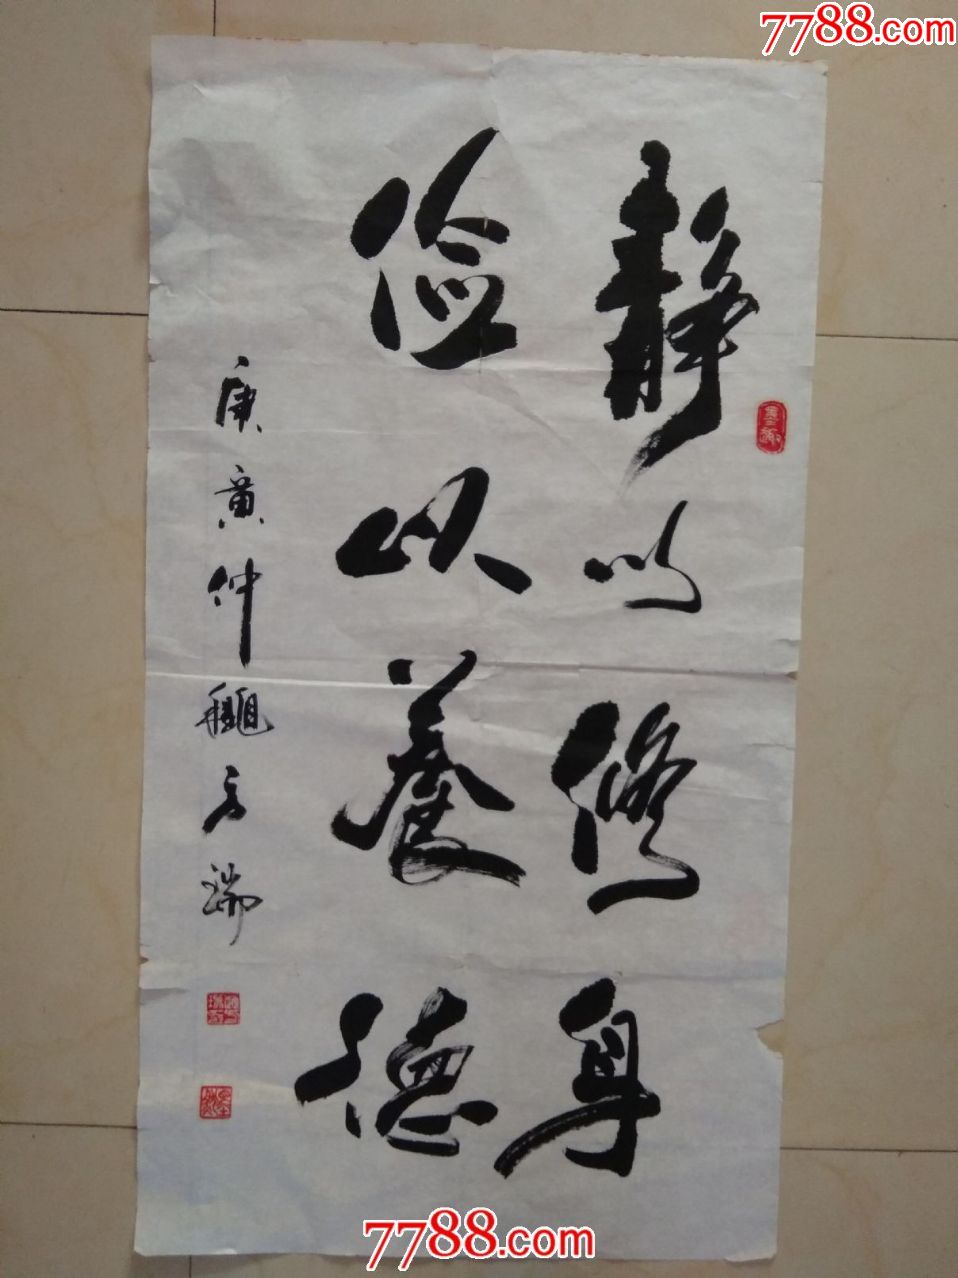 7788.com
静以修身
俭以养德
庚寅仲龝方瑞
墨趣
7788.com